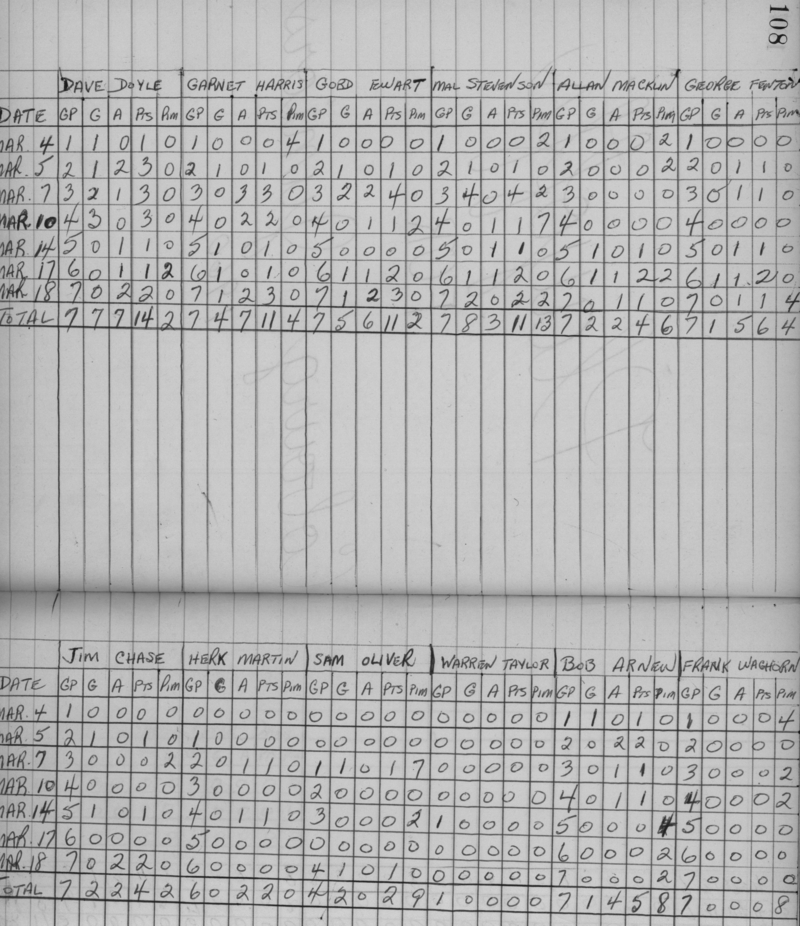 108
DAVE DOYLE GARNET HARRIS GORD EWART MAL STEVENSON ALLAN MACKLIN GEORGE FENTON
DATE GP G A PTS PIM GP G A PTS PIM GP G A PTS PIM GP G A PTS PIM GP G A PTS PIM GP G A PTS PIM
MAR. 4 1 1 0 1 0 1 0 0 0 4 1 0 0 0 0 1 0 0 0 2 1 0 0 0 2 1 0 0 0 0
MAR. 5 2 1 2 3 0 2 1 0 1 0 2 1 0 1 0 2 1 0 1 0 2 0 0 0 2 2 0 1 1 0
MAR. 7 3 2 1 3 0 3 0 3 3 0 3 2 2 4 0 3 4 0 4 2 3 0 0 0 0 3 0 1 1 0
MAR 10 4 3 0 3 0 4 0 2 2 0 4 0 1 1 2 4 0 1 1 7 4 0 0 0 0 4 0 0 0 0
MAR 14 5 0 1 1 0 5 1 0 1 0 5 0 0 0 0 5 0 1 1 0 5 1 0 1 0 5 0 1 1 0
MAR. 17 6 0 1 1 2 6 1 0 1 0 6 1 1 2 0 6 1 1 2 0 6 1 1 2 2 6 1 1 2 0
MAR 18 7 0 2 2 0 7 1 2 3 0 7 1 2 3 0 7 2 0 2 2 7 0 1 1 0 7 0 1 1 4
TOTAL 7 7 7 14 2 7 4 7 11 4 7 5 6 11 2 7 8 3 11 13 7 2 2 4 6 7 1 5 6 4
JIM CHASE HERK MARTIN SAM OLIVER WARREN TAYLOR BOB ARNEW FRANK WAGHORN
DATE GP G A PTS PIM GP G A PTS PIM GP G A PTS PIM GP G A PTS PIM GP G A PTS PIM GP G A PTS PIM
MAR. 4 1 0 0 0 0 0 0 0 0 0 0 0 0 0 0 0 0 0 0 0 1 1 0 1 0 1 0 0 0 4
MAR 5 2 1 0 1 0 1 0 0 0 0 0 0 0 0 0 0 0 0 0 0 2 0 2 2 0 2 0 0 0 0
MAR. 7 3 0 0 0 2 2 0 1 1 0 1 1 0 1 7 0 0 0 0 0 3 0 1 1 0 3 0 0 0 2
MAR. 10 4 0 0 0 0 3 0 0 0 0 2 0 0 0 0 0 0 0 0 0 4 0 1 1 0 4 0 0 0 2
MAR 14 5 1 0 1 0 4 0 1 1 0 3 0 0 0 2 1 0 0 0 0 5 0 0 0 4 5 0 0 0 0
MAR. 17 6 0 0 0 0 5 0 0 0 0 0 0 0 0 0 0 0 0 0 0 6 0 0 0 2 6 0 0 0 0
MAR. 18 7 0 2 2 0 6 0 0 0 0 4 1 0 1 0 0 0 0 0 0 7 0 0 0 2 7 0 0 0 0
TOTAL 7 2 2 4 2 6 0 2 2 0 4 2 0 2 9 1 0 0 0 0 7 1 4 5 8 7 0 0 0 8